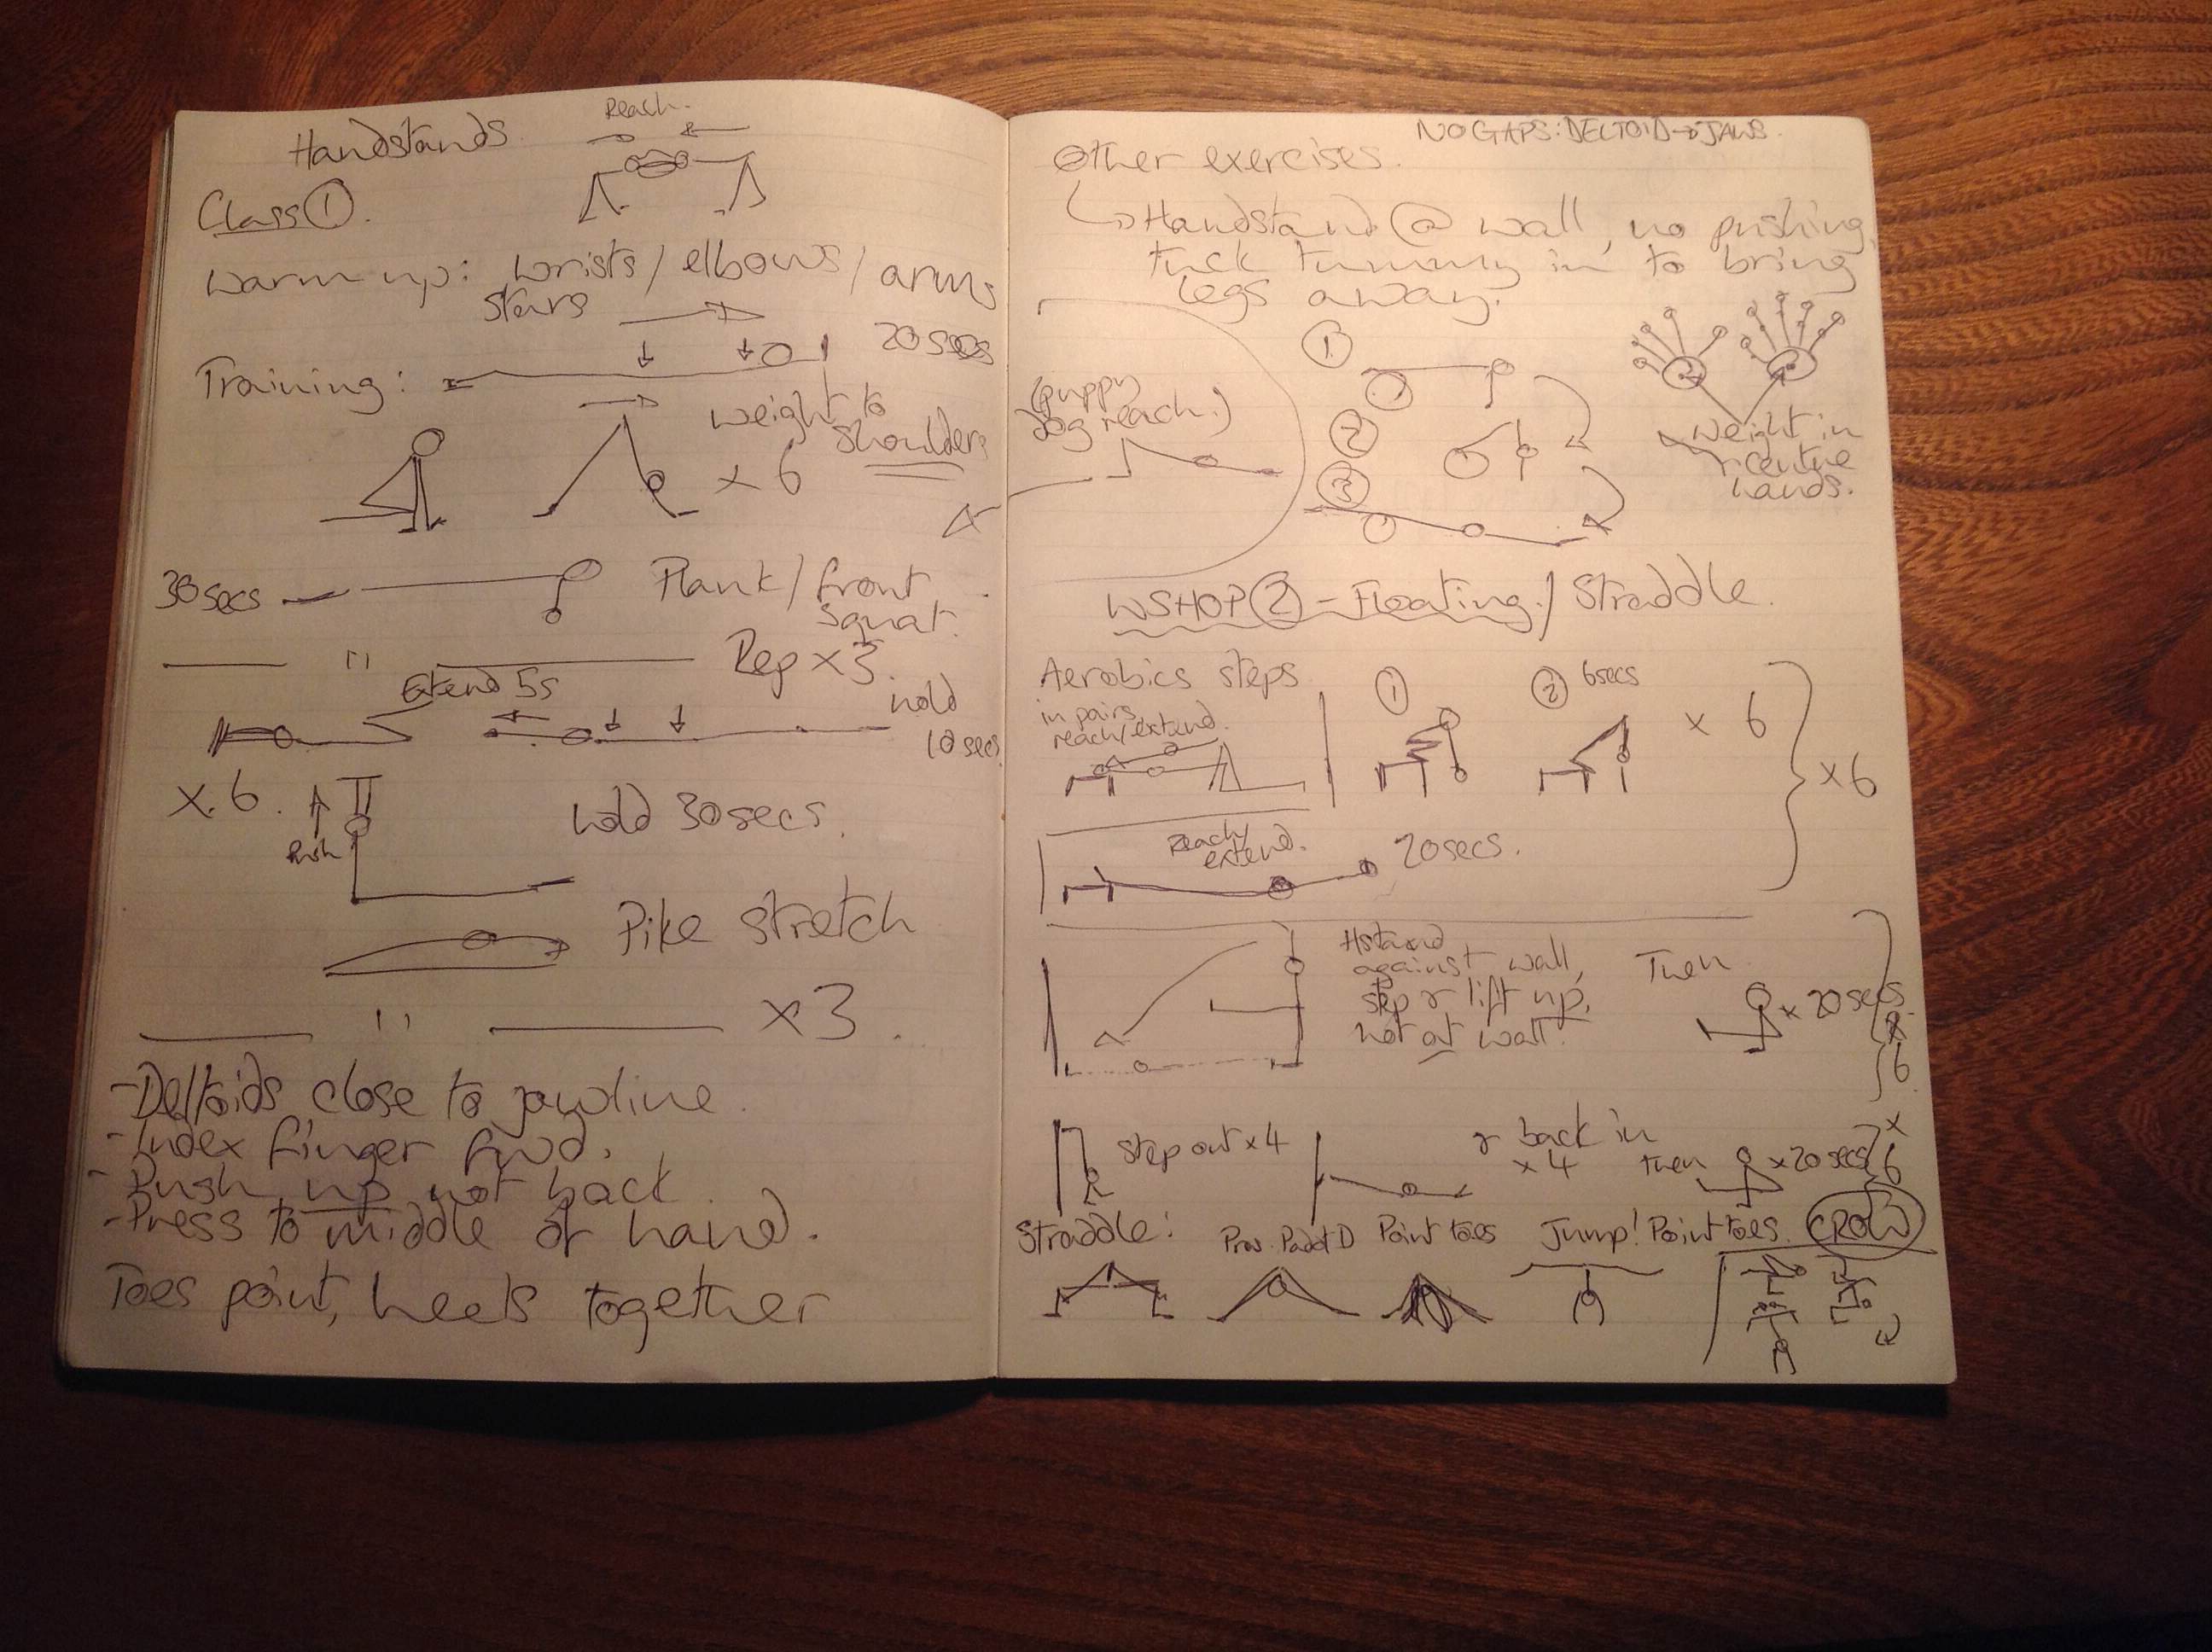 Handstands
Reach.
Class ①.
Warm up: wrists / elbows / arms
stars
20 secs
Training:
weight to
shoulders
x 6
30 secs
Plank / front
squat.
— " — Rep x 3.
Extend 5s
hold
10 secs
x 6.
Push
hold 30 secs.
Pike stretch
— " — x 3.
- Deltoids close to jawline.
- Index finger fwd.
- Push up not back.
- Press to middle of hand.
Toes point, heels together
NO GAPS: DELTOID → JAWS.
Other exercises.
↳ Handstand @ wall, no pushing,
tuck tummy in to bring
legs away.
①
(puppy
dog reach.)
②
③
weight in
centre
hands.
WSHOP ② - Floating / Straddle.
Aerobics steps
in pairs
reach/extend.
①
② 6secs
x 6
x 6
Reach/
extend.
20secs.
Hstand
against wall,
step & lift up,
not at wall.
Then
x 20secs
x
6
step out x 4
& back in
x 4
then
x 20secs
x
6
Straddle:
Point toes
Jump!
Point toes.
CROW